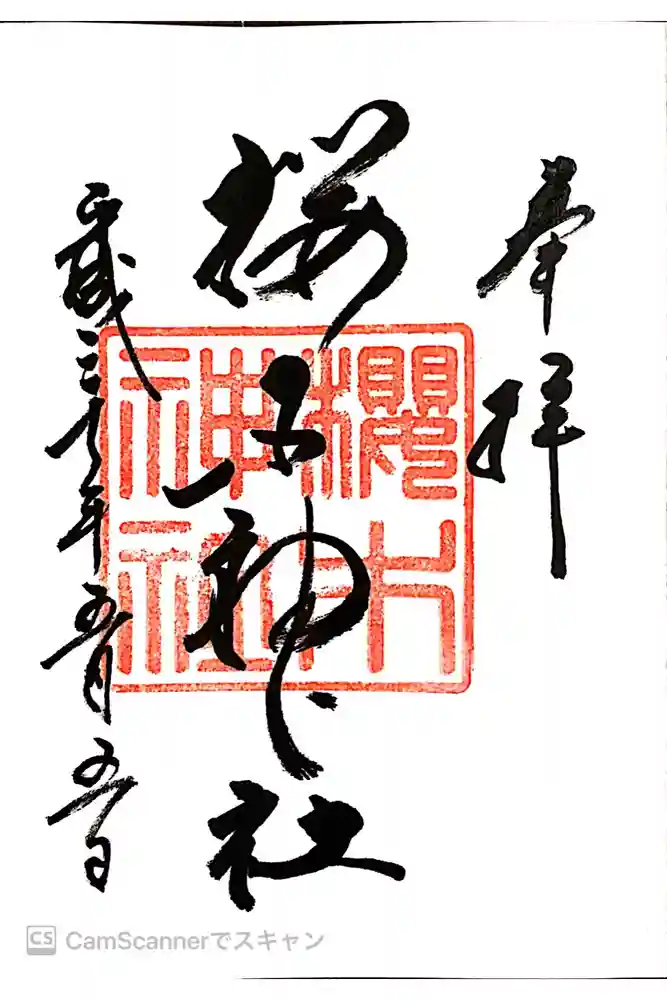 奉拝
桜井神社
平成三十年五月五日
櫻井
神社
CS CamScannerでスキャン